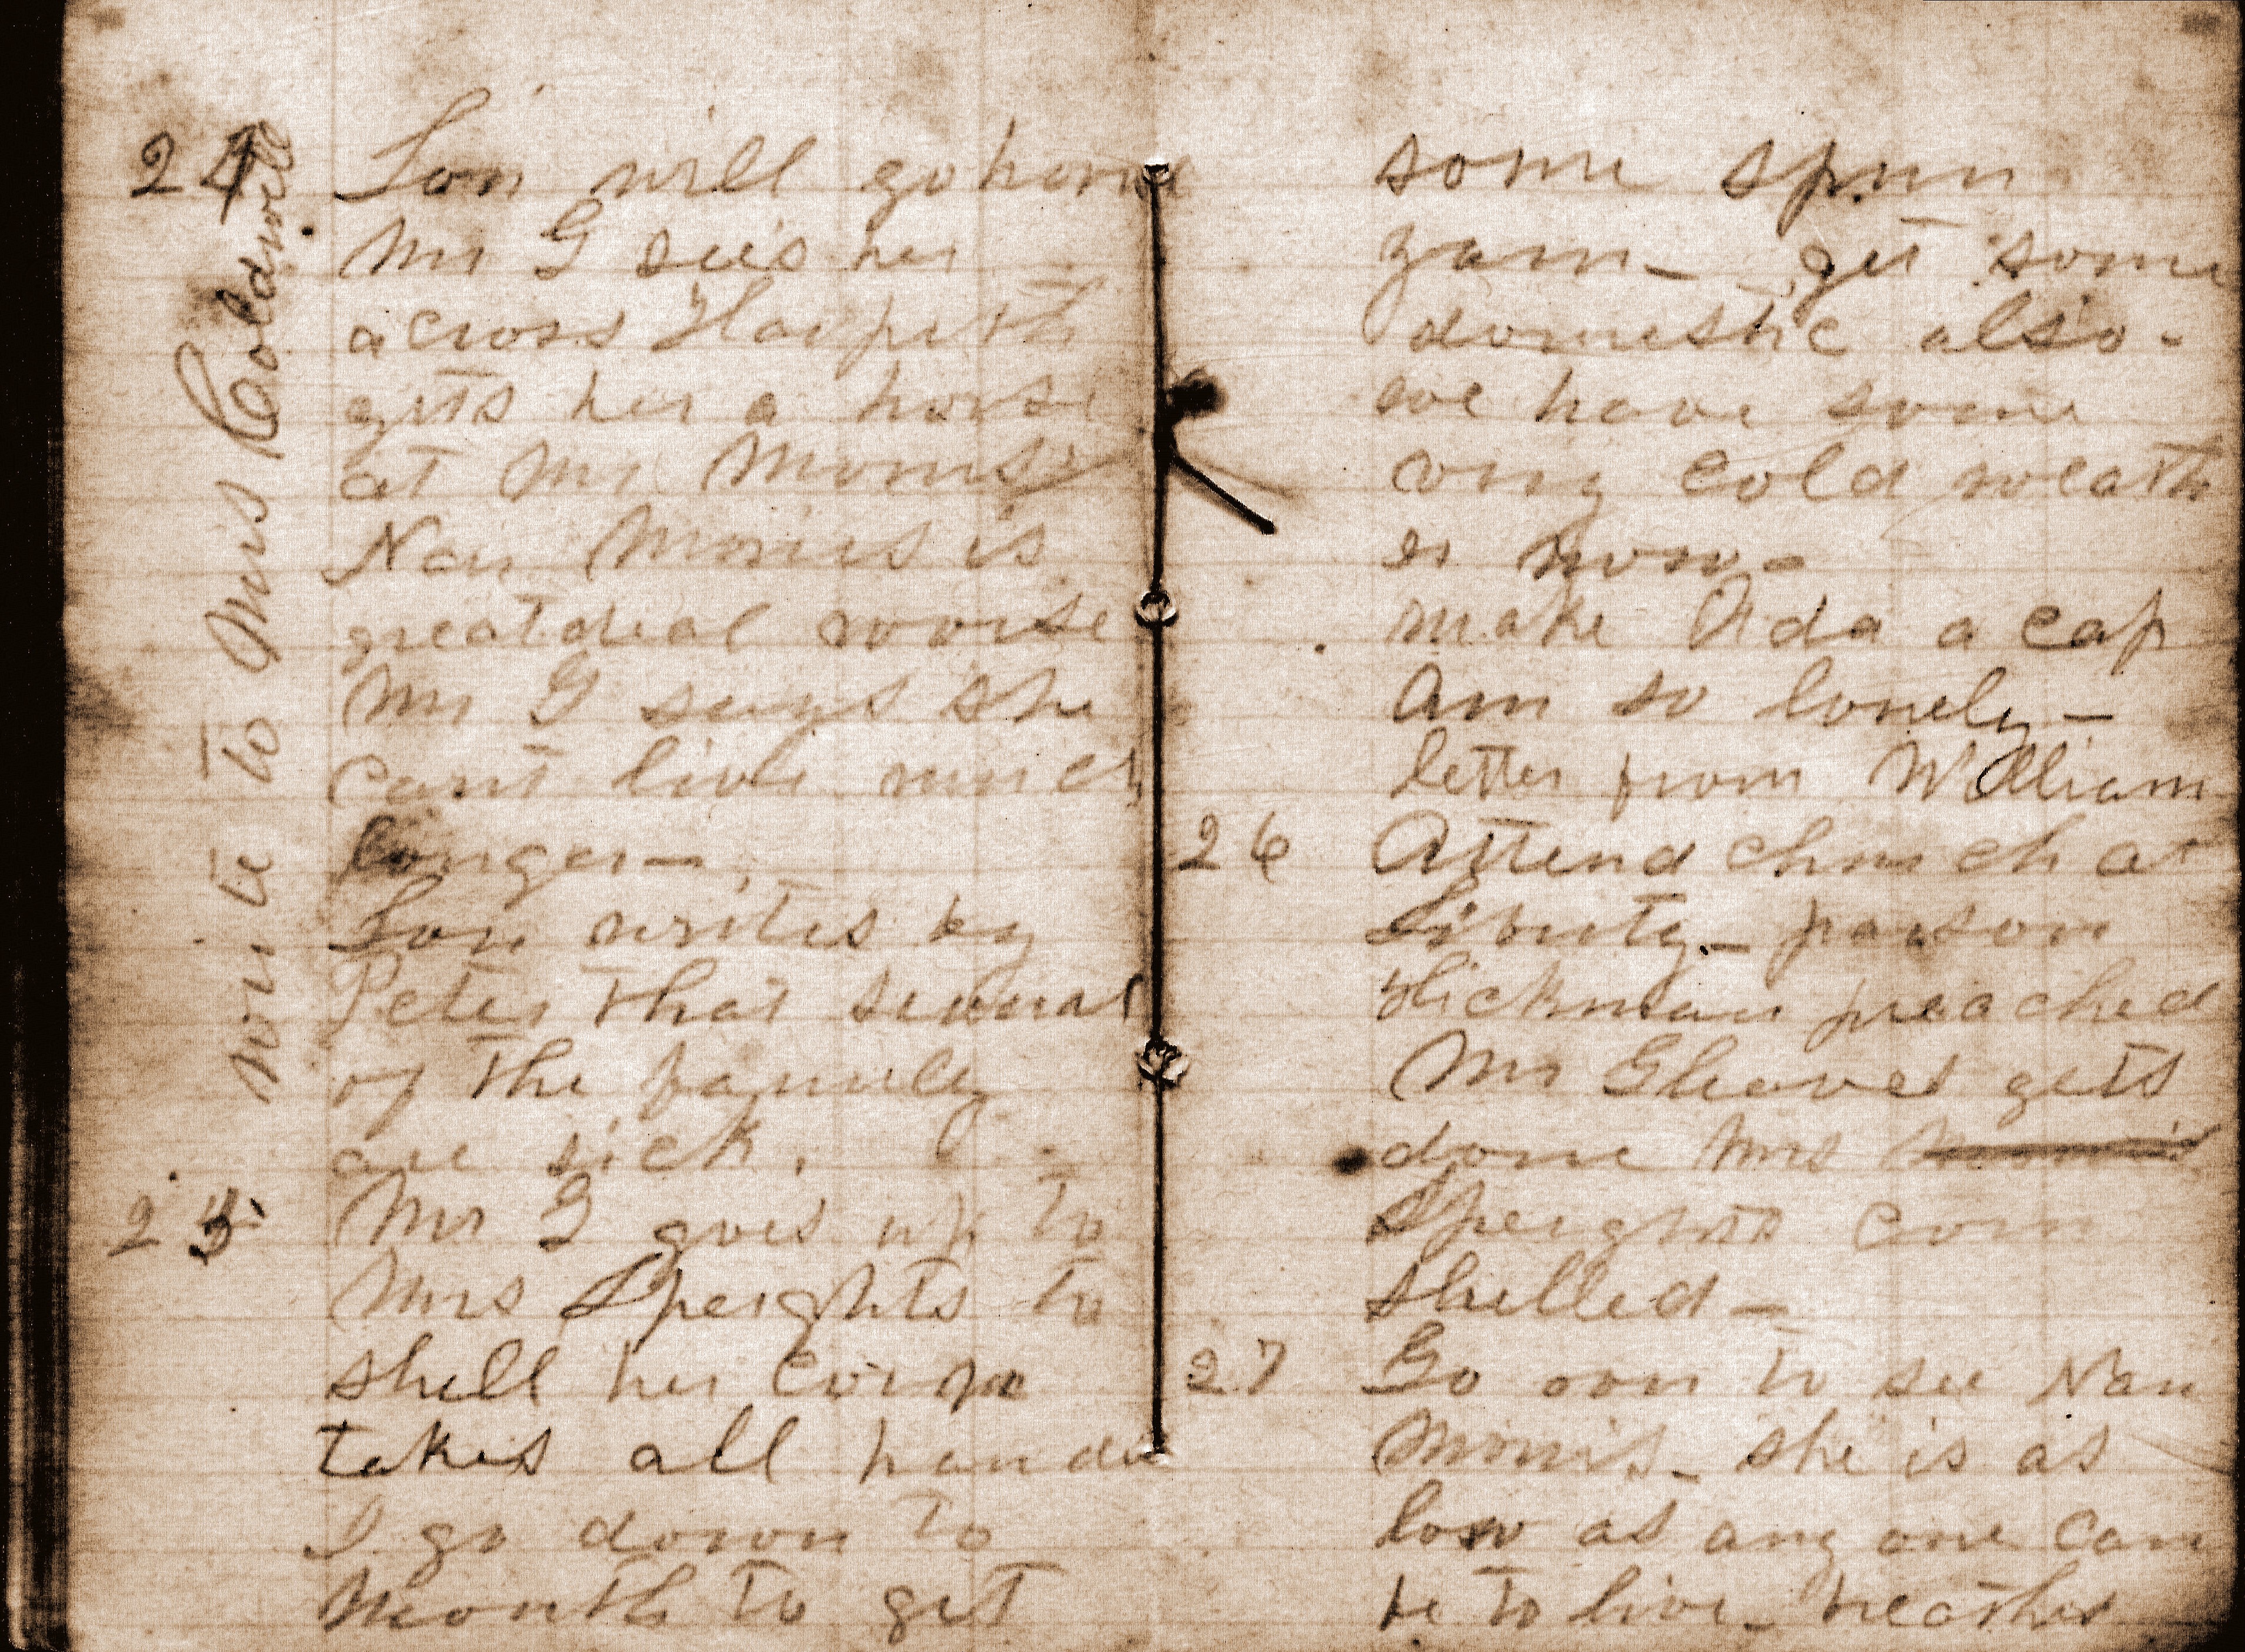 24 Lou will go home
Mr G sees her
across Harpeth
gets her a horse
at Mr Morris's
Nan Morris is
great deal worse
Mr G says she
cant live much
longer—
Lou writes by
Peter that several
of the family
are sick.
25 Mr G goes up to
Mrs Speights to
shell her corn
takes all hands
I go down to
Mouth to get
wrote to Mrs Coldwell
some spun
yarn— get some
domestic also-
we have some
very cold weath
er now—
make Ada a cap
am so lonely—
letter from William
26 Attend church at
Liberty— parson
Hickman preached
Mr Gleaves gets
done Mrs Morris
Speights corn
shelled—
27 Go over to see Nan
Morris— she is as
low as any one can
be to live— weather